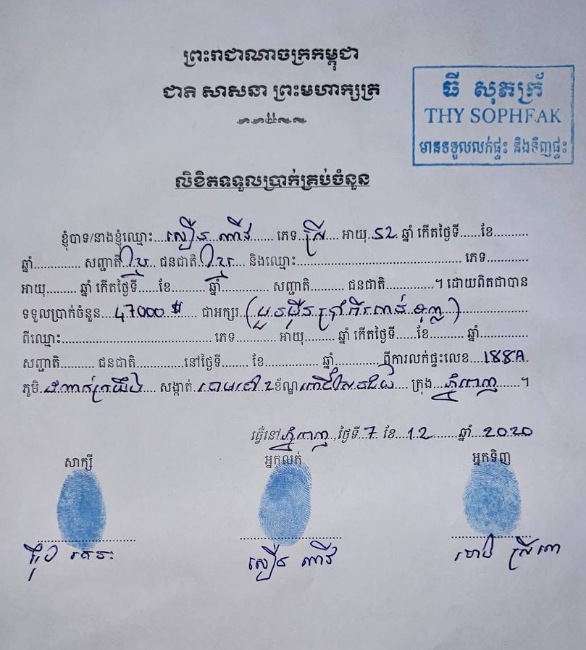 ព្រះរាជាណាចក្រកម្ពុជា
ជាតិ សាសនា ព្រះមហាក្សត្រ
ធី សុភក្រ័
THY SOPHEAK
មានទទួលលក់ផ្ទះ និងទិញផ្ទះ
លិខិតទទួលប្រាក់គ្រប់ចំនួន
ខ្ញុំបាទ/នាងខ្ញុំឈ្មោះ...សឿន ណាវី...... ភេទ.ស្រី... អាយុ.52 ឆ្នាំ កើតថ្ងៃទី......ខែ............
ឆ្នាំ............ សញ្ជាតិ.ខ្មែរ. ជនជាតិ.ខ្មែរ.. និងឈ្មោះ............................................ ភេទ............
អាយុ....... ឆ្នាំ កើតថ្ងៃទី......ខែ.......... ឆ្នាំ............. សញ្ជាតិ........ ជនជាតិ..........។ ដោយពិតជាបាន
ទទួលប្រាក់ចំនួន...47000$... ជាអក្សរ.(បួនម៉ឺនប្រាំពីរពាន់ដុល្លា)
ពីឈ្មោះ.................................... ភេទ............ អាយុ........ ឆ្នាំ កើតថ្ងៃទី......ខែ.......... ឆ្នាំ............
សញ្ជាតិ......... ជនជាតិ...........នៅថ្ងៃទី......... ខែ.............. ឆ្នាំ.......... ពីការលក់ផ្ទះលេខ.188A.
ភូមិ. សង្កាត់. ខ័ណ្ឌ ក្រុង.ភ្នំពេញ......។
ធ្វើនៅភ្នំពេញ..,ថ្ងៃទី.7. ខែ.12........ ឆ្នាំ...2020
សាក្សី អ្នកលក់ អ្នកទិញ
សឿន ណាវី